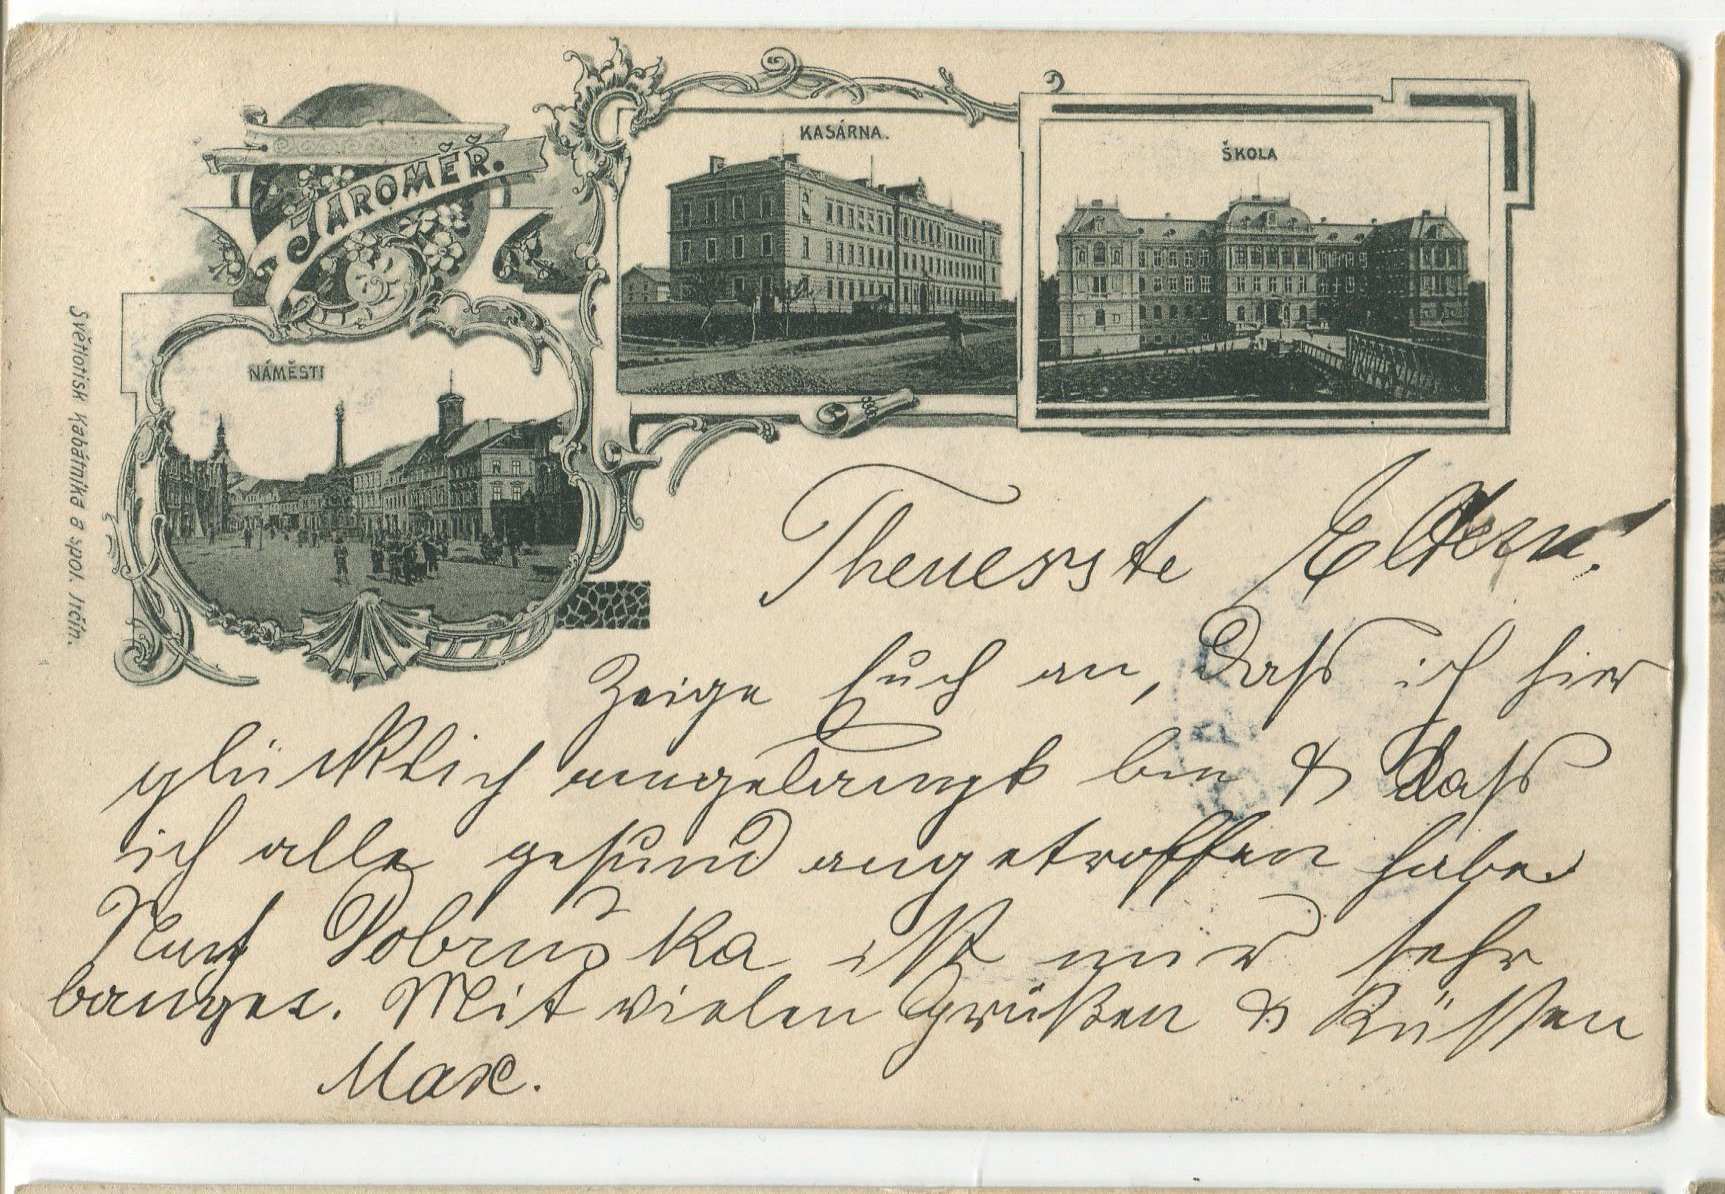 JAROMĚŘ.
KASÁRNA.
ŠKOLA
NÁMĚSTI
Světlotisk Kabátníka a spol. Jičín.
Theuerste Eltern!
Zeige Euch an, dass ich hier
glücklich angelangt bin & dass
ich alle gesund angetroffen habe.
Nach Dobruška ist mir sehr
bange. Mit vielen Grüßen & Küssen
Max.